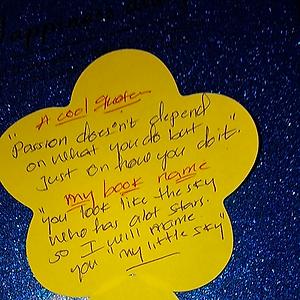 Happiness
A cool quote
"Passion doesn't depend
on what you do but
just on how you do it."
my book name
"you look like the sky
who has alot stars.
so I will name
you "my little sky"